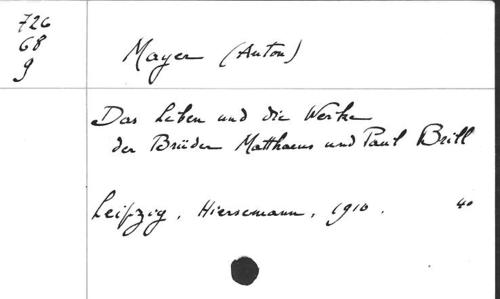 726
68
9
Mayer (Anton)
Das Leben und die Werke
der Brüder Matthaeus und Paul Brill
Leipzig, Hiersemann, 1910. 4o